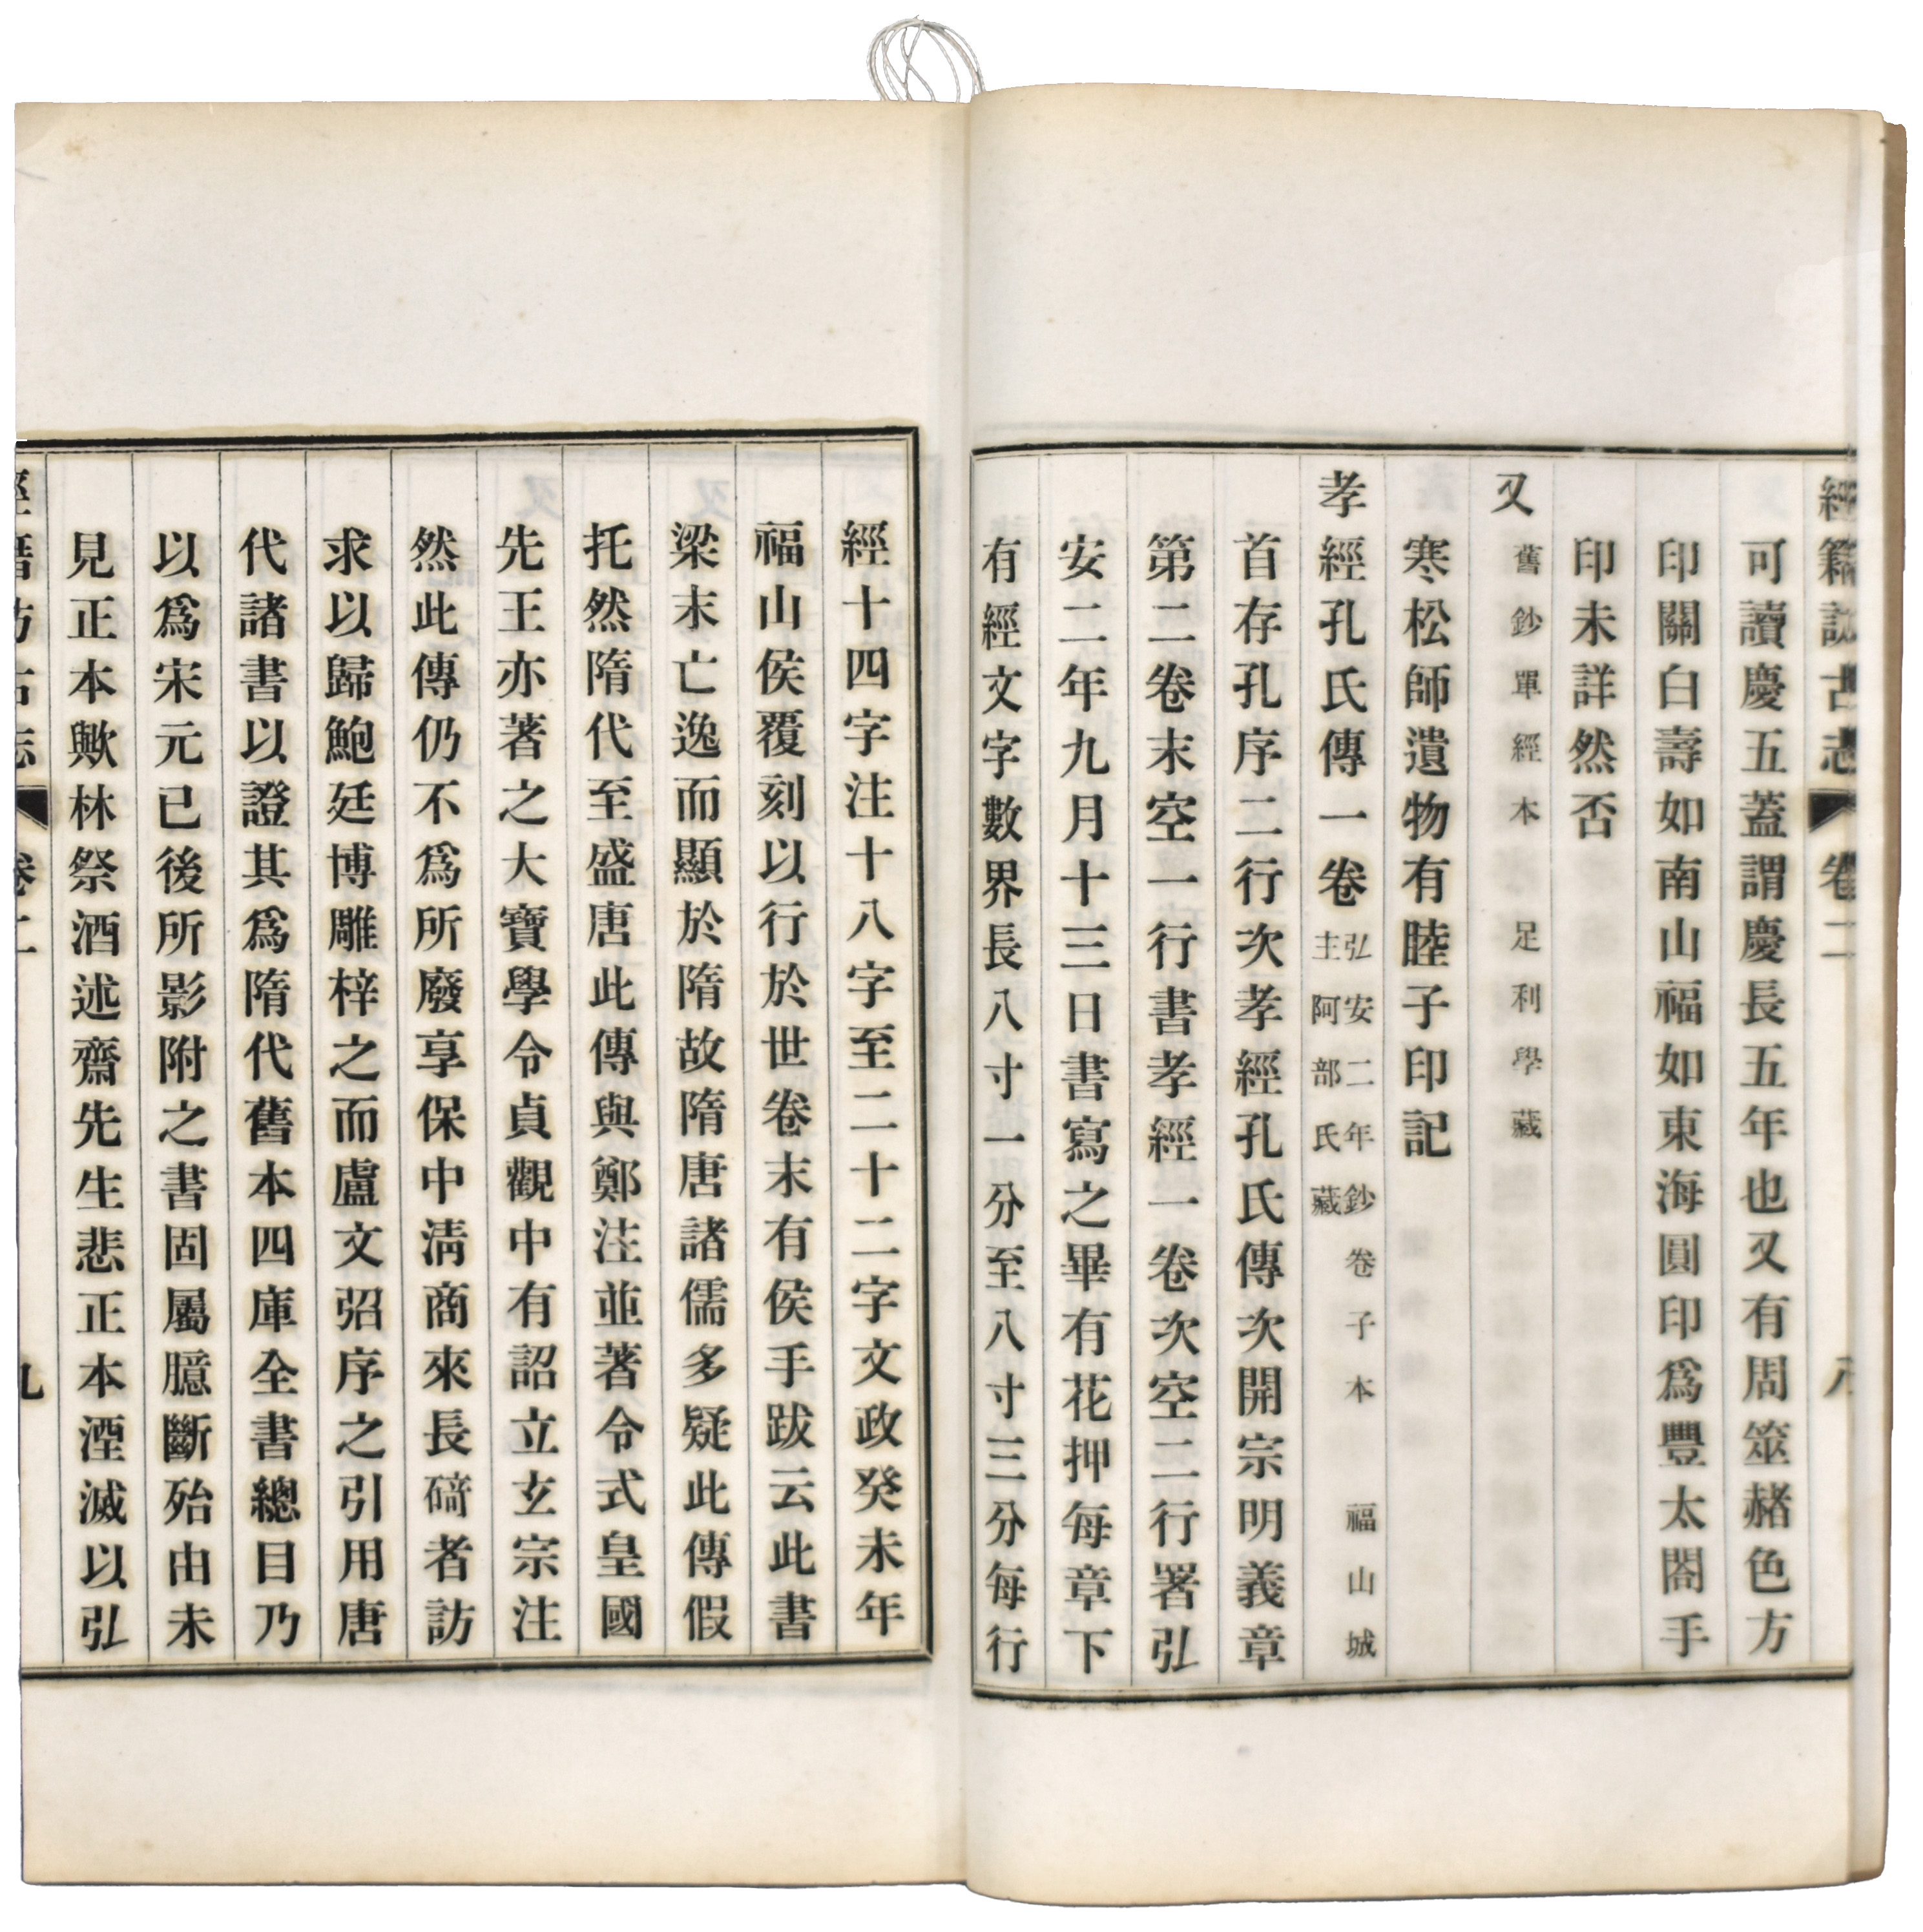 經籍訪古志 卷二 八
可讀慶五蓋謂慶長五年也又有周筮赭色方
印關白壽如南山福如東海圓印爲豐太閤手
印未詳然否
又 舊鈔單經本 足利學藏
寒松師遺物有睦子印記
孝經孔氏傳一卷 弘安二年鈔卷子本 福山城主阿部氏藏
首存孔序二行次孝經孔氏傳次開宗明義章
第二卷末空一行書孝經一卷次空二行署弘
安二年九月十三日書寫之畢有花押每章下
有經文字數界長八寸一分至八寸三分每行
經十四字注十八字至二十二字文政癸未年
福山侯覆刻以行於世卷末有侯手跋云此書
梁末亡逸而顯於隋故隋唐諸儒多疑此傳假
托然隋代至盛唐此傳與鄭注並著令式皇國
先王亦著之大寶學令貞觀中有詔立玄宗注
然此傳仍不爲所廢享保中淸商來長碕者訪
求以歸鮑廷博雕梓之而盧文弨序之引用唐
代諸書以證其爲隋代舊本四庫全書總目乃
以爲宋元已後所影附之書固屬臆斷殆由未
見正本歟林祭酒述齋先生悲正本湮滅以弘
經籍訪古志 卷二 九